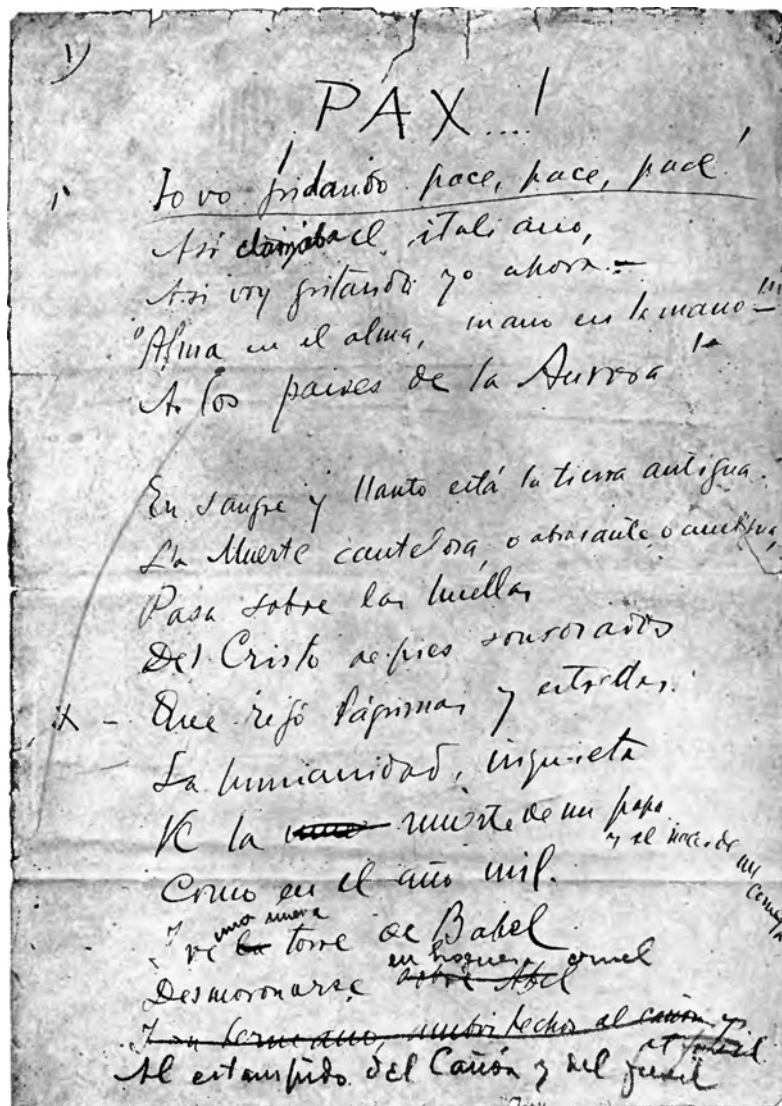 1)
PAX....!
1° Io vo gridando pace, pace, pace!
Así clamaba el italiano,
Así voy gritando yo ahora.—
"Alma en el alma, mano en la mano—"!!!
A los países de la Aurora!..
En sangre y llanto está la tierra antigua.
La Muerte cautelosa, o abrasante, o ambigua,
Pasa sobre las huellas
Del Cristo de pies sonrosados
X - Que regó lágrimas y estrellas.
La humanidad, inquieta
Ve la muerte de un papa y el nacer de un cometa
Como en el año mil.
Y ve la una nueva torre de Babel
Desmoronarse sobre Abel en hoguera cruel
Al estampido del Cañón y del fusil